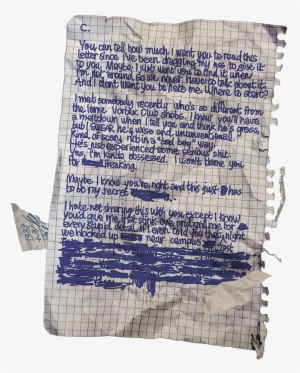 C.
You can tell how much I want you to read this
letter since I've been dragging my ass to give it
to you. Maybe I just want you to find it when
I'm not around, so we never have to talk about it.
And I don't want you to hate me. Where to start?
I met somebody recently who's so different from
the lame Vortex Club snobs. I know you'll have
a meltdown when I tell you and think he's gross,
but I SWEAR he's wise and unconventional.
Kind of scary, not in a "bad boy" way.
He's just experienced some serious shit.
Yes, I'm kinda obsessed. I won't blame you
for freaking.
Maybe I know you're right and this just has
to be my secret
I hate not sharing this with you except I know
you'd give me that stink-eye and grill me for
every stupid detail. If I even told you that night
we hooked up near campus